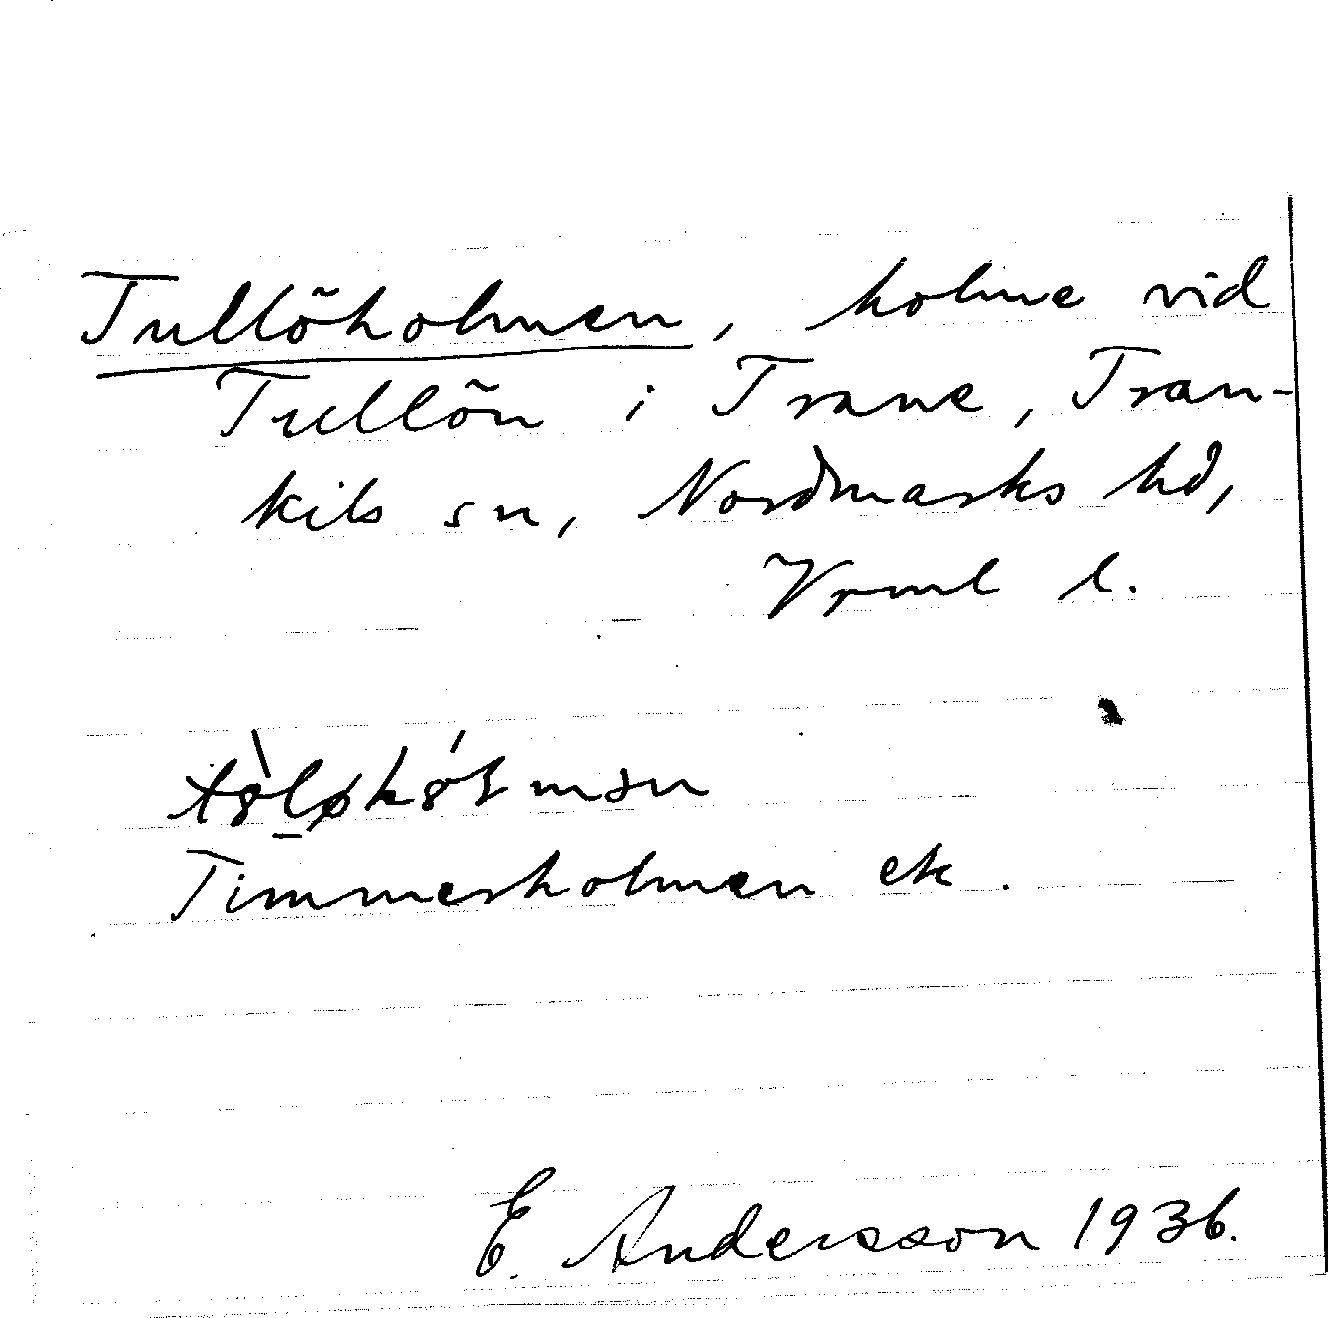 Tullöholmen, holme vid
Tullön i Trane, Tran-
kils sn, Nordmarks hd,
Vrml l.
Timmerholmen ek.
E. Andersson 1936.